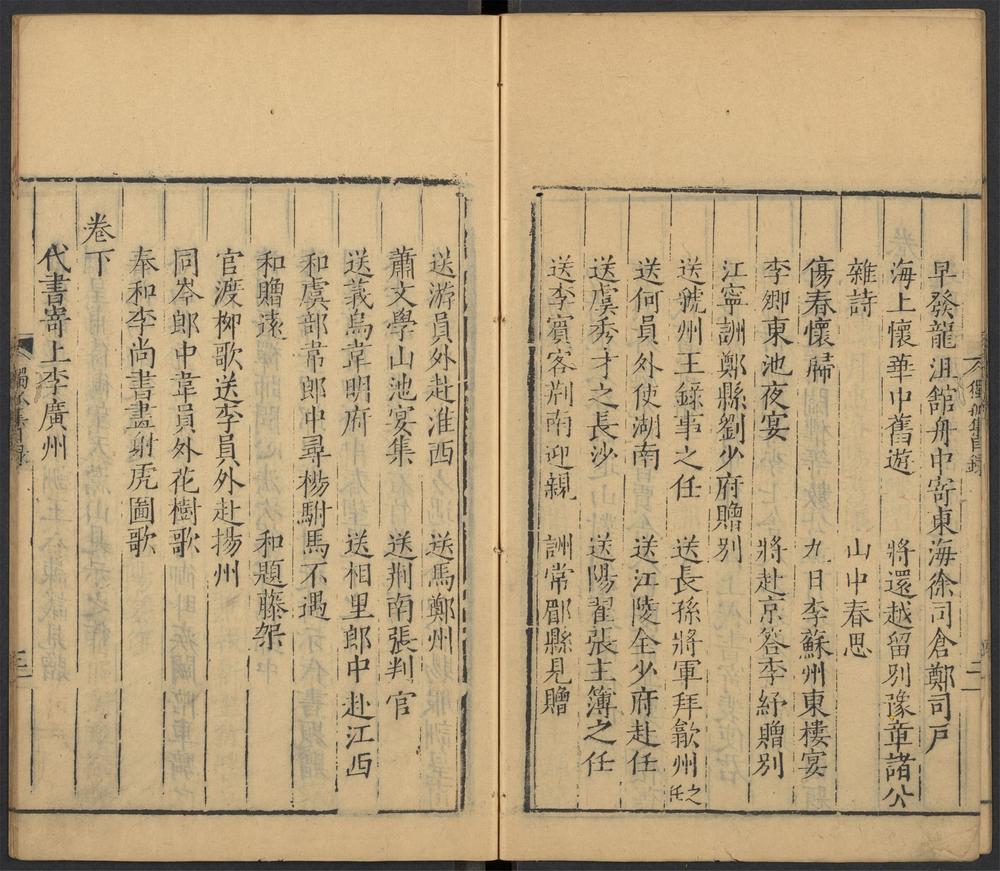 早發龍沮館舟中寄東海徐司倉鄭司戶
海上懷華中舊遊　將還越留別豫章諸公
雜詩　山中春思
傷春懷歸　九日李蘇州東樓宴
李卿東池夜宴　將赴京答李紓贈別
江寧詶鄭縣劉少府贈別
送虢州王錄事之任　送長孫將軍拜歙州之任
送何員外使湖南　送江陵全少府赴任
送虞秀才之長沙　送陽翟張主簿之任
送李賓客荊南迎親　詶常郿縣見贈
送游員外赴淮西　送馬鄭州
蕭文學山池宴集　送荊南張判官
送義烏韋明府　送相里郎中赴江西
和虞部韋郎中尋楊駙馬不遇
和贈遠　和題藤架
官渡柳歌送李員外赴揚州
同岑郎中韋員外花樹歌
奉和李尚書畫射虎圖歌
卷下
代書寄上李廣州